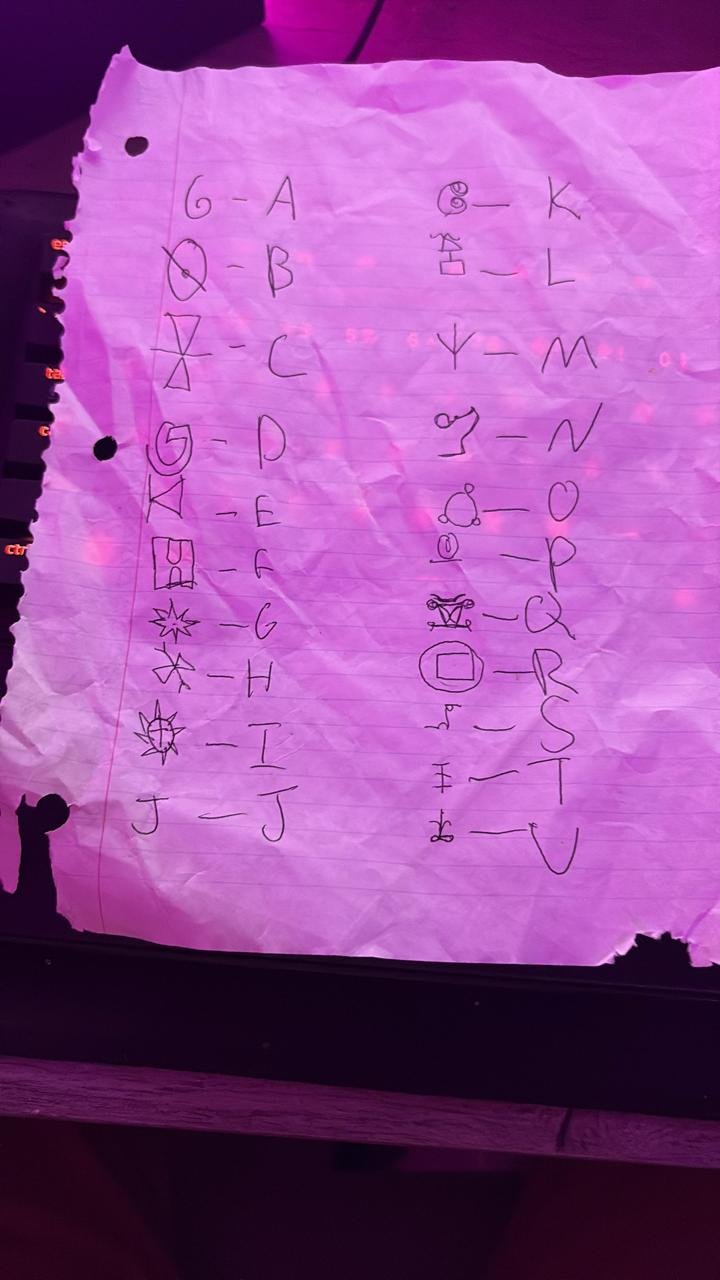 6 - A
- B
- C
- D
- E
- F
- G
- H
- I
J - J
- K
- L
- M
- N
- O
- P
- Q
- R
- S
- T
- U